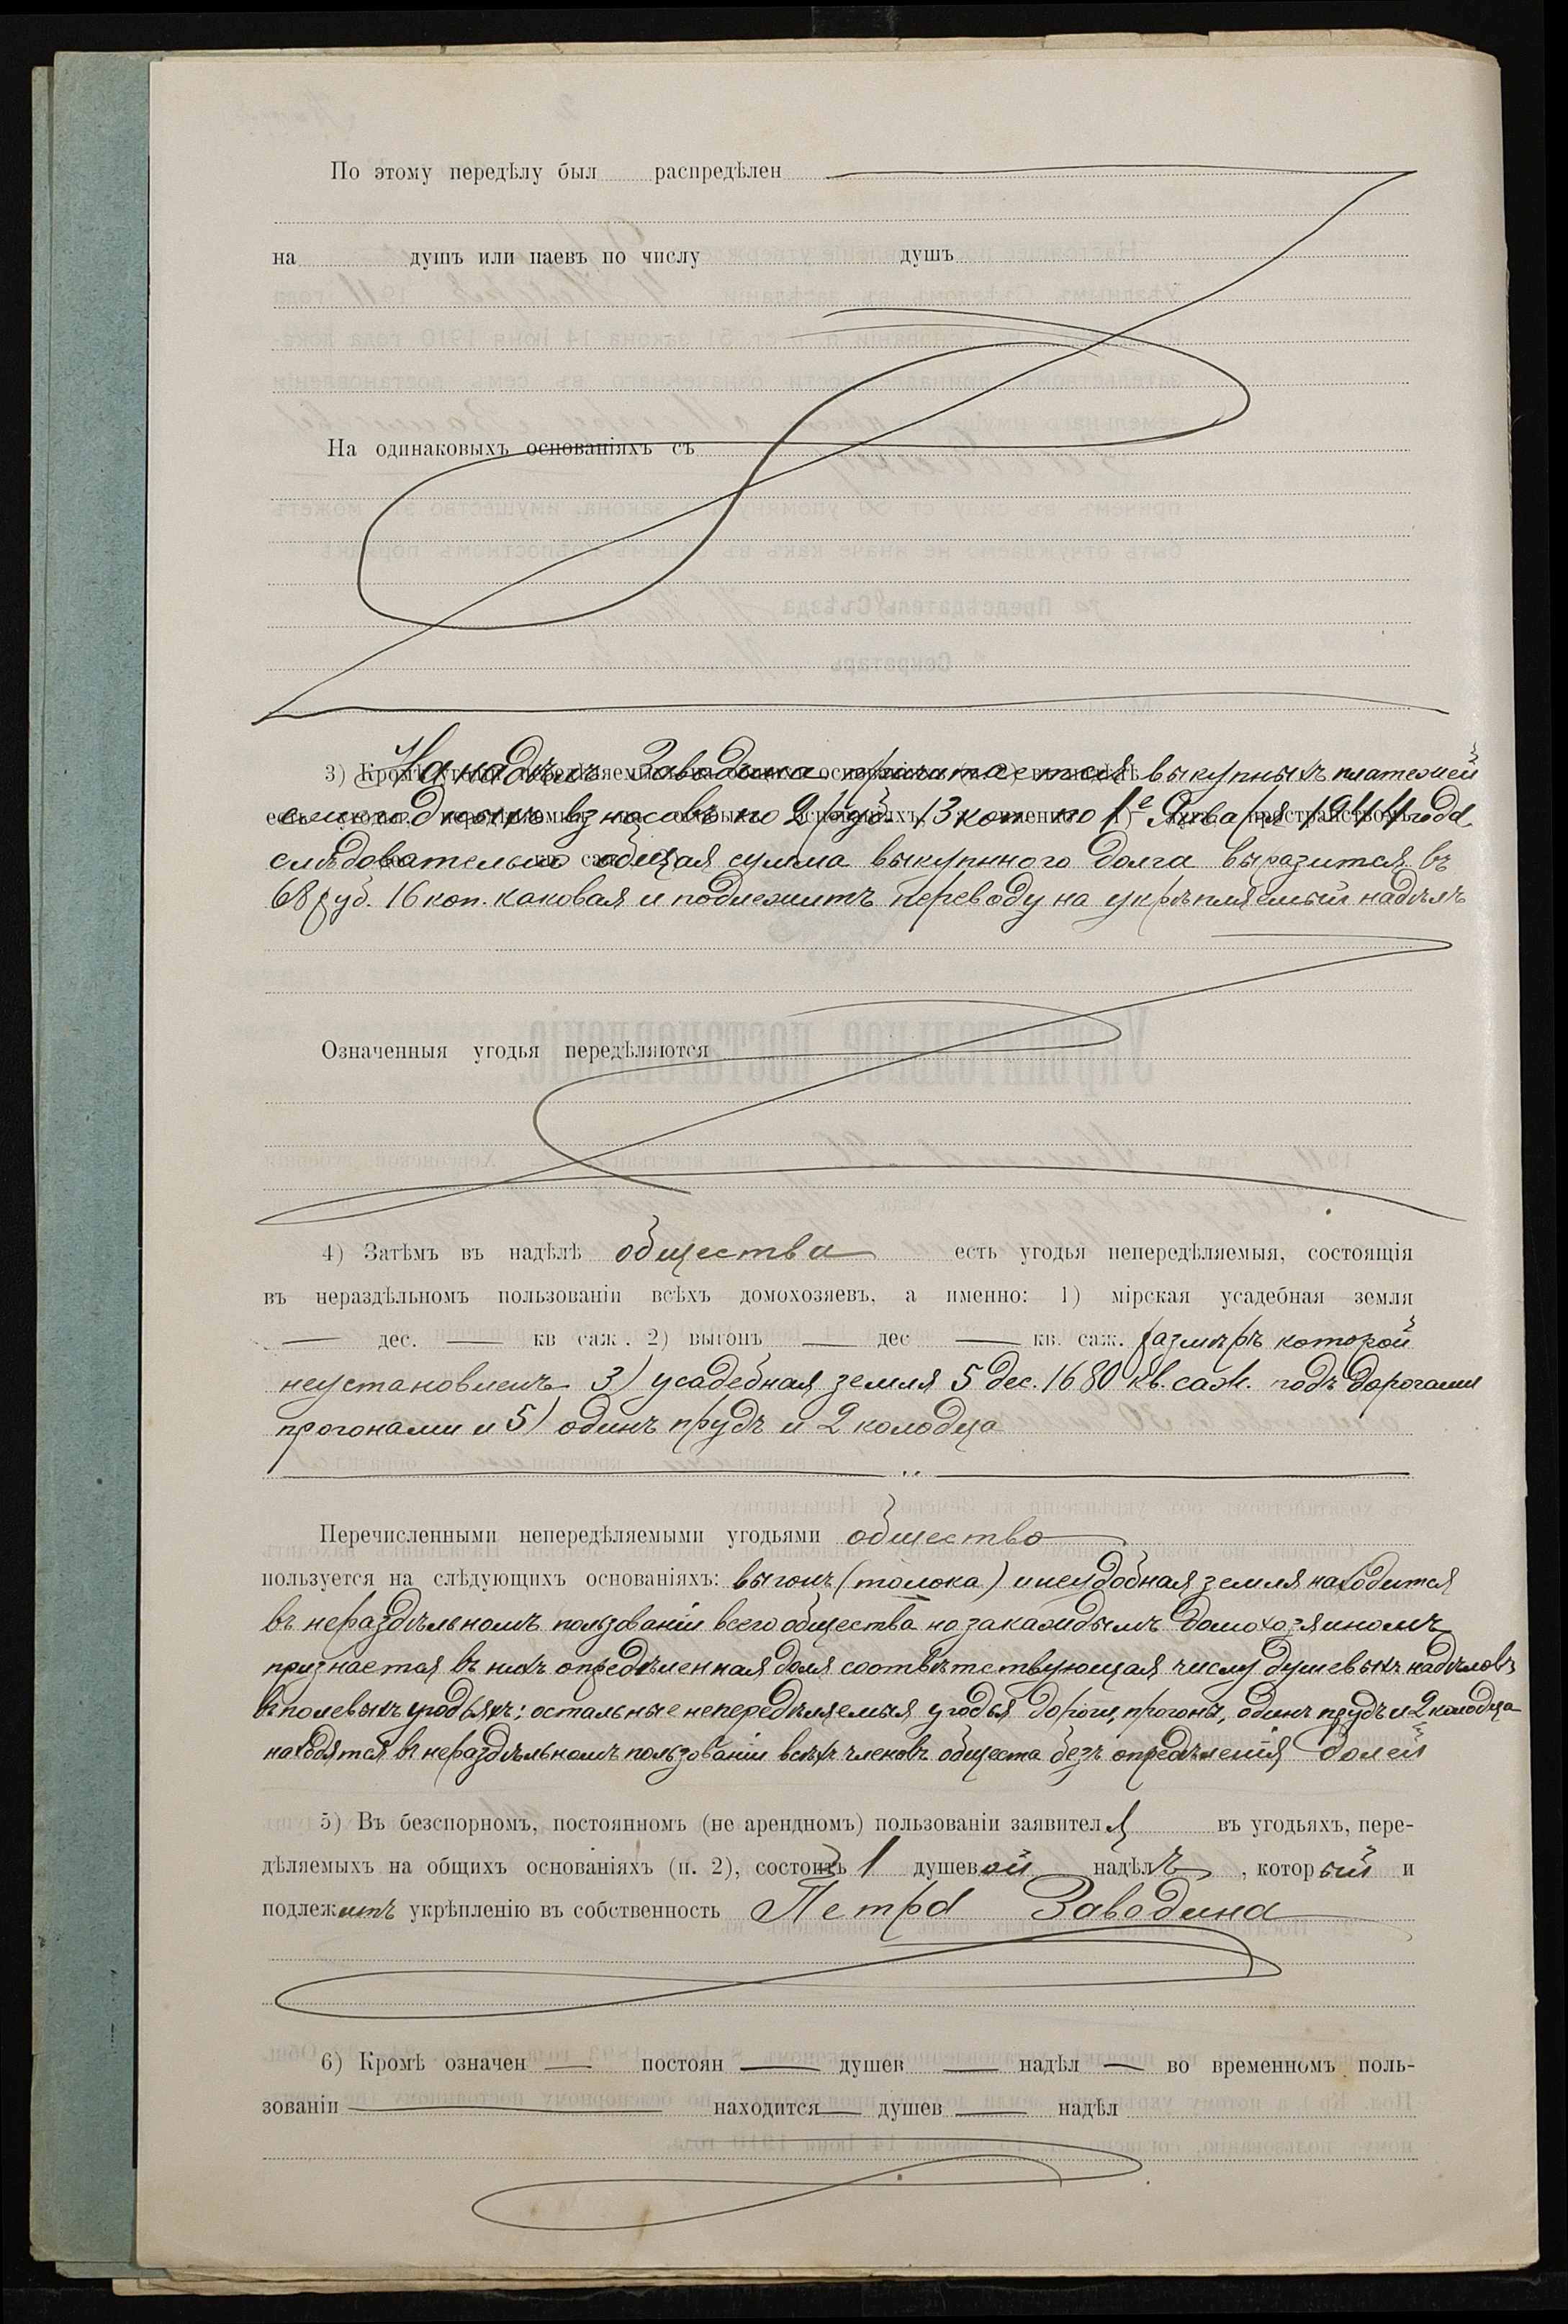 По этому передѣлу был распредѣлен
на душъ или паевъ по числу душъ
На одинаковыхъ основаніяхъ съ
3) На надѣлъ Заводина причитается выкупныхъ платежей
взносовъ по 2 руб. 13 коп. по 1е Января 1944 года,
слѣдовательно общая сумма выкупнного долга выразится въ
68 руб. 16 коп. каковая и подлежитъ переводу на укрѣпляемый надѣлъ
Означенныя угодья передѣляются
4) Затѣмъ въ надѣлѣ общества есть угодья непередѣляемыя, состоящія
въ нераздѣльномъ пользованіи всѣхъ домохозяевъ, а именно: 1) мірская усадебная земля
— дес. — кв саж. 2) выгонъ — дес — кв. саж. размѣръ которой
неустановленъ 3) усадебная земля 5 дес. 1680 кв. саж. подъ дорогами
прогонами и 5) одинъ прудъ и 2 колодца
Перечисленными непередѣляемыми угодьями общество
пользуется на слѣдующихъ основаніяхъ: выгонъ (толока) и неудобная земля находится
въ нераздѣльномъ пользованіи всего общества но закаждымъ домохозяиномъ
признается въ нихъ опредѣленная доля соотвѣтствующая числу душевыхъ надѣловъ
въ полевыхъ угодьяхъ; остальные непередѣляемыя угодья дороги, прогоны, одинъ прудъ и 2 колодца
находятся въ нераздѣльномъ пользованіи всѣхъ членовъ общества безъ опредѣленія долей
5) Въ безспорномъ, постоянномъ (не арендномъ) пользованіи заявителя въ угодьяхъ, пере-
дѣляемыхъ на общихъ основаніяхъ (п. 2), состоитъ 1 душевой надѣлъ, который и
подлежитъ укрѣпленію въ собственность Петра Заводина
6) Кромѣ означен — постоян — душев — надѣл — во временномъ поль-
зованіи — находится — душев — надѣл